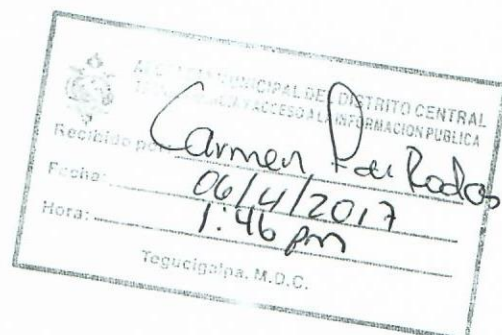 ALCALDIA MUNICIPAL DEL DISTRITO CENTRAL
Y ACCESO A LA INFORMACION PUBLICA
Recibido por: Carmen Rodas
Fecha: 06/4/2017
Hora: 1:46 pm
Tegucigalpa, M.D.C.